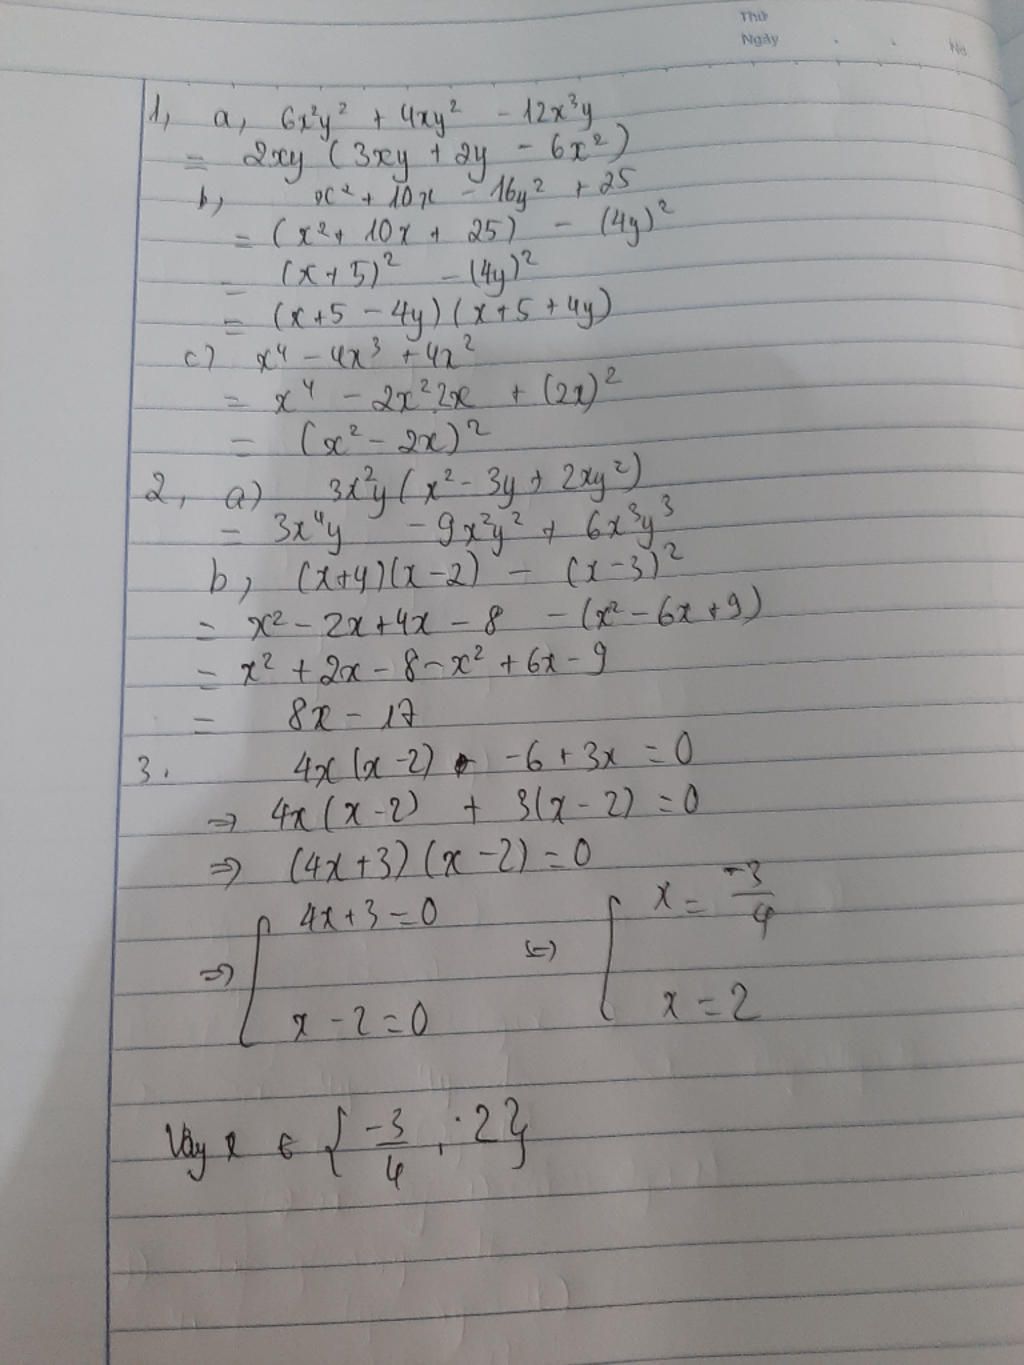 Thứ
Ngày
No.
1, a, 6x²y² + 4xy² - 12x³y
= 2xy (3xy + 2y - 6x²)
b, x² + 10x - 16y² + 25
= (x² + 10x + 25) - (4y)²
= (x + 5)² - (4y)²
= (x + 5 - 4y)(x + 5 + 4y)
c) x⁴ - 4x³ + 4x²
= x⁴ - 2x².2x + (2x)²
= (x² - 2x)²
2, a) 3x²y(x² - 3y + 2xy²)
= 3x⁴y - 9x²y² + 6x³y³
b, (x+4)(x-2) - (x-3)²
= x² - 2x + 4x - 8 - (x² - 6x + 9)
= x² + 2x - 8 - x² + 6x - 9
= 8x - 17
3. 4x(x-2) - 6 + 3x = 0
⇒ 4x(x-2) + 3(x-2) = 0
⇒ (4x+3)(x-2) = 0
⇒ [ 4x+3 = 0 ⇔ [ x = -3/4
x - 2 = 0 x = 2
Vậy x ∈ { -3/4 ; 2 }